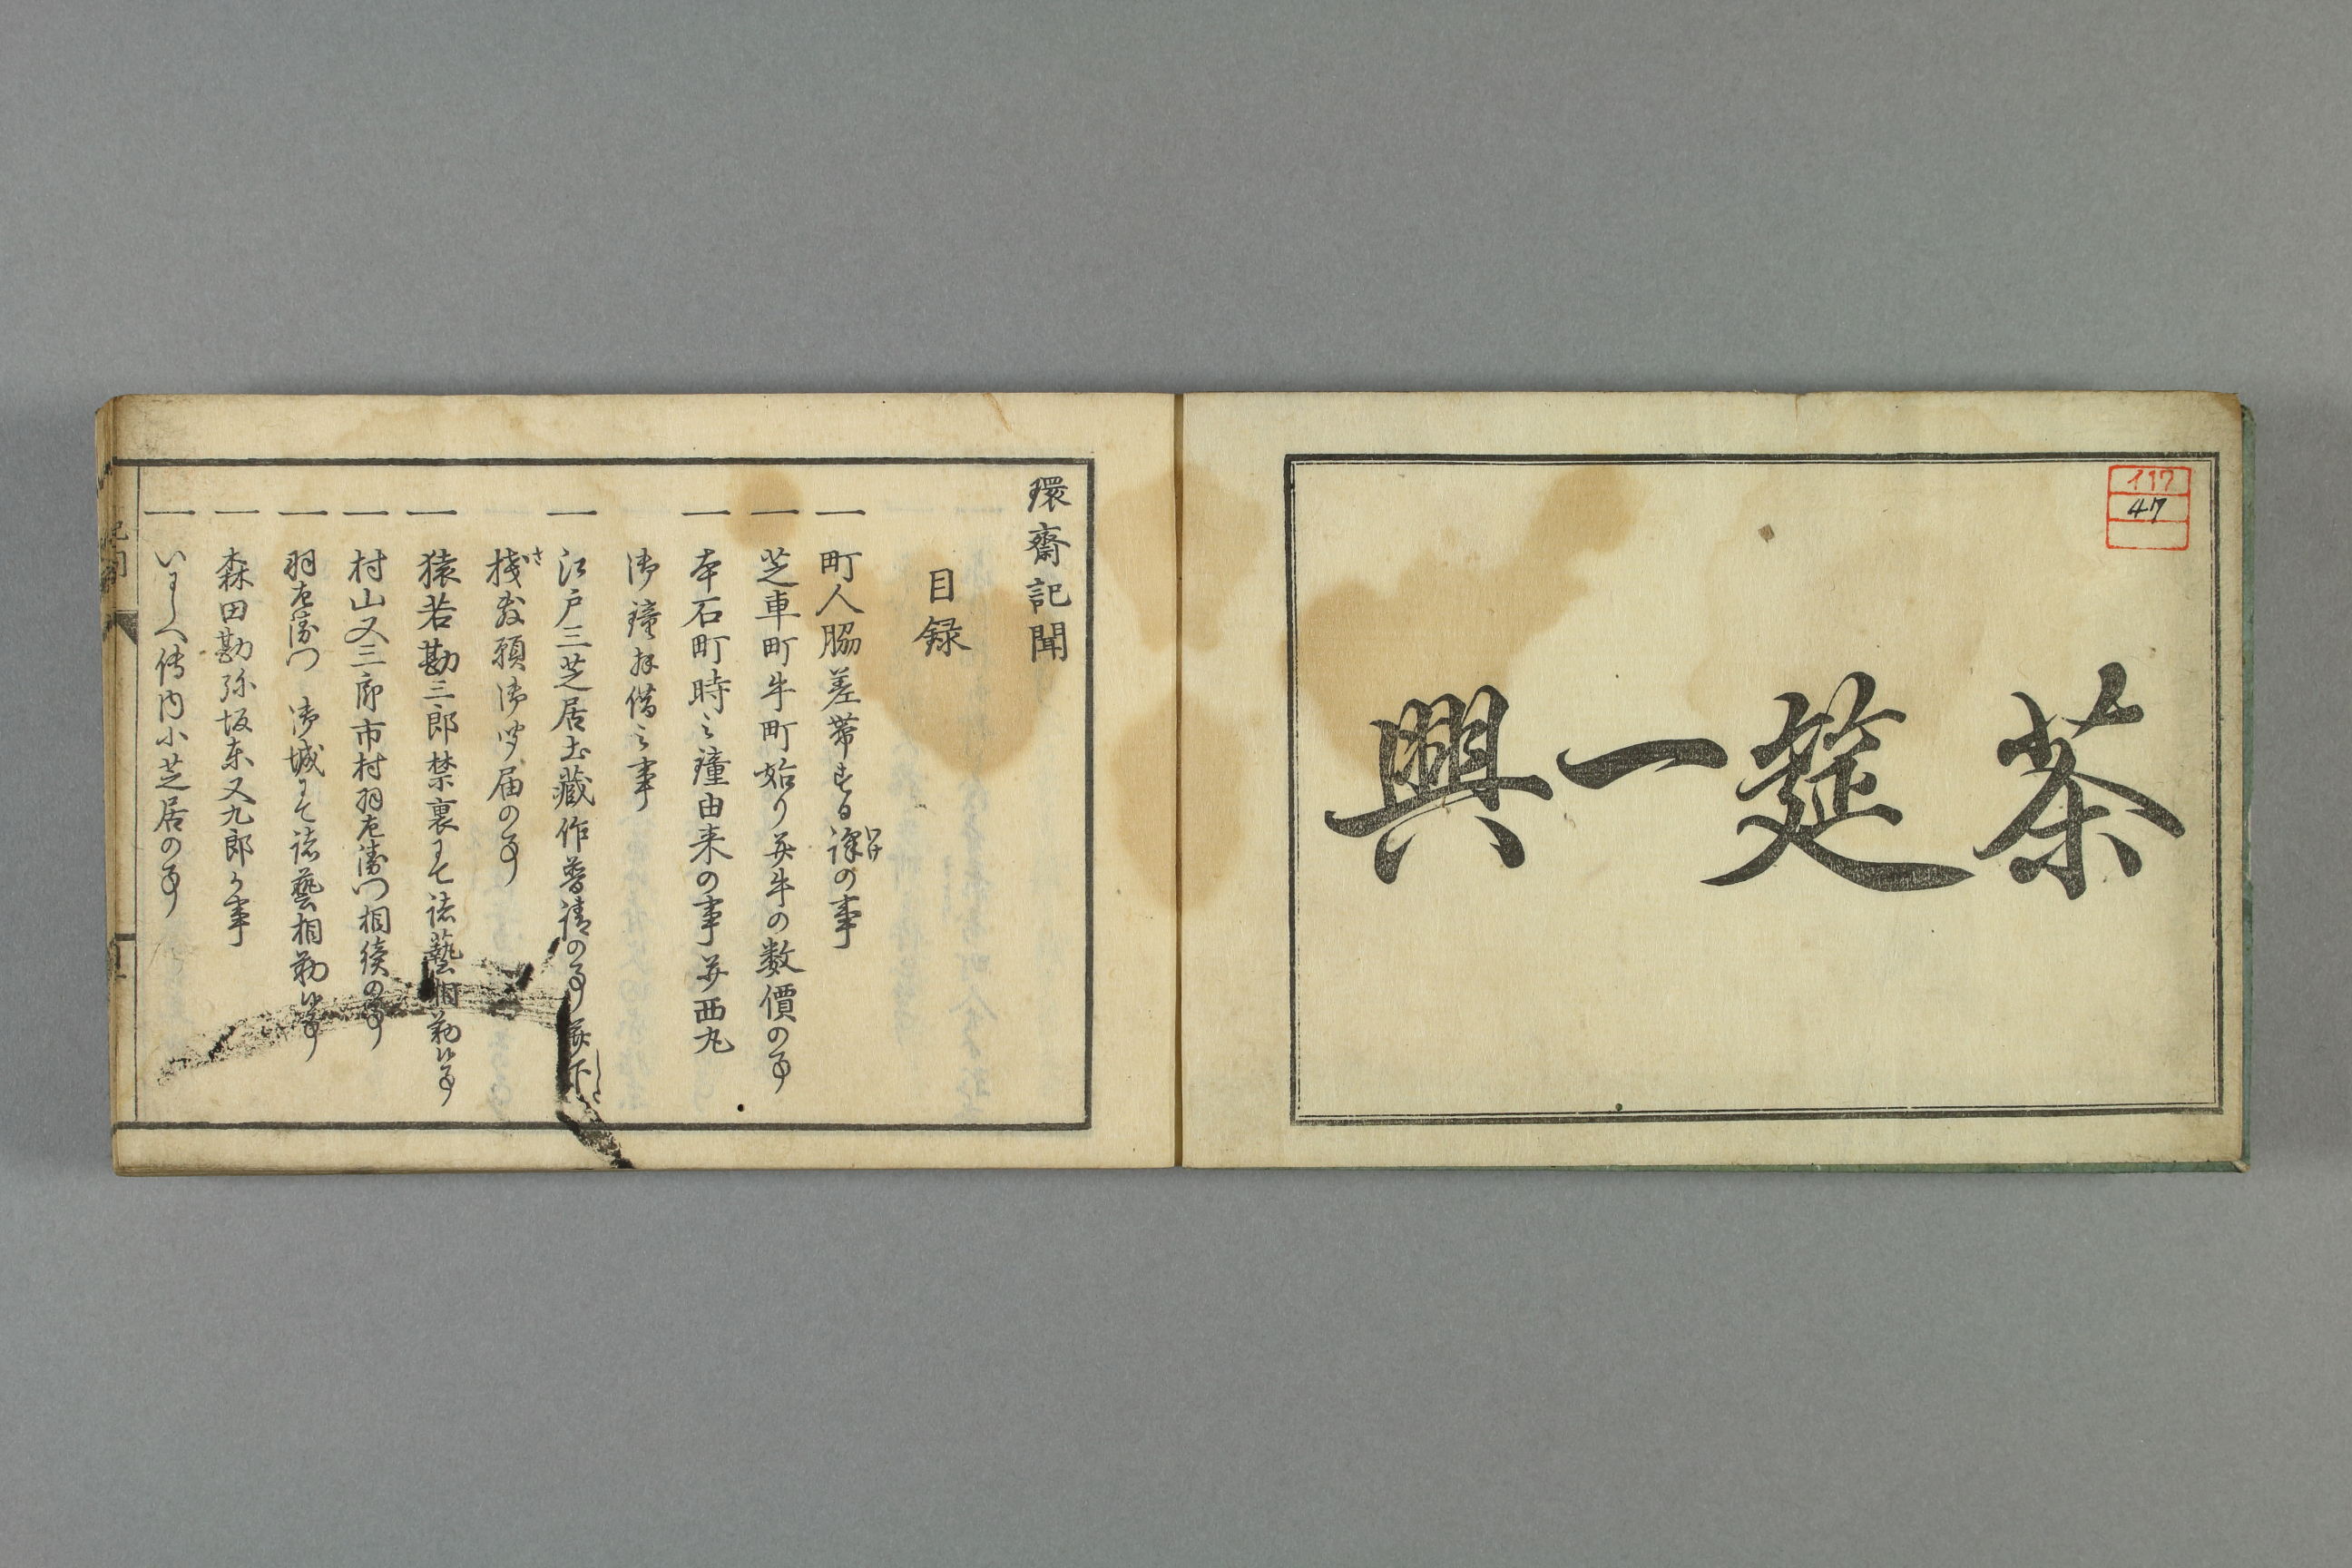 茶筵一興
117
47
環齋記聞
目録
一 町人脇差帯する譯の事
わけ
一 芝車町牛町始り并牛の数價の事
一 本石町時之鐘由来の事并西丸
御鐘拝借之事
一 江戸三芝居土藏作普請の事并下
した
桟敷願御聞届の事
さ
一 猿若勘三郎禁裏にて諸藝相勤候事
一 村山又三郎市村羽左衛門相続の事
一 羽左衛門 御城にて諸藝相勤候事
一 森田勘弥坂東又九郎か事
一 いにしへ傳内小芝居の事